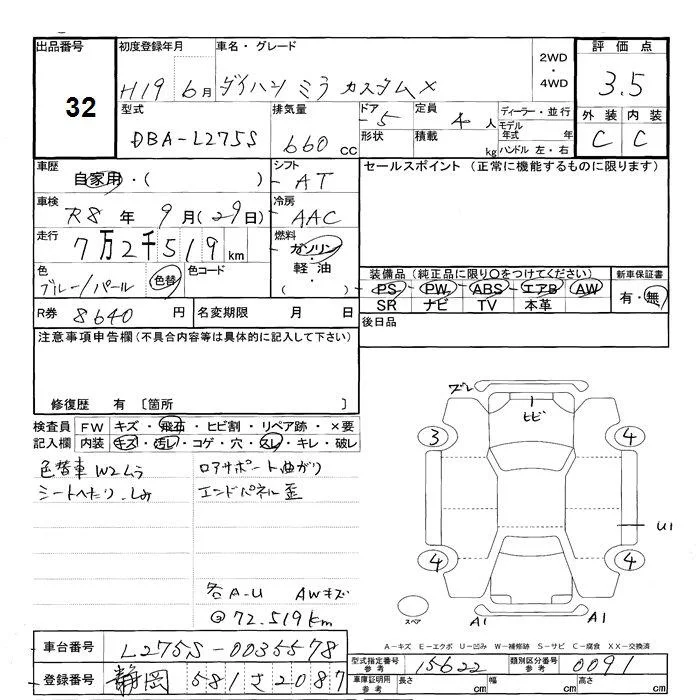 出品番号 初度登録年月 車名・グレード 2WD・4WD 評価点
32 H19 6月 ダイハツ ミラ カスタムX 3.5
型式 排気量 ドア 定員 ディーラー・並行 外装 内装
DBA-L275S 660 CC 5 4人 モデル年式 年 C C
形状 積載 kg ハンドル 左・右
車歴 自家用・( ) シフト AT セールスポイント (正常に機能するものに限ります)
車検 R8年 9月(29日) 冷房 AAC
走行 7万2千519km 燃料 ガソリン・軽油・( )
色 ブルー/パール 色替 色コード
装備品 (純正品に限り○をつけてください) 新車保証書
PS・PW・ABS・エアB・AW 有・無
SR ナビ TV 本革
R券 8640円 名変期限 月 日 後日品
注意事項申告欄(不具合内容等は具体的に記入して下さい)
修復歴 有 〔箇所
検査員記入欄 FW キズ・飛石・ヒビ割・リペア跡・×要
内装 キズ・汚レ・コゲ・穴・スレ・キレ・破レ
色替車 W2ムラ ロアサポート曲がり
シートへたり.しみ エンドパネル歪
各A-U AWキズ
@72.519km
ズレ
ヒビ
3 4
U1
4 4
スペア A1 A1
A-キズ E-エクボ U-凹み W-補修跡 S-サビ C-腐食 XX-交換済
車台番号 L275S-0035578
登録番号 静岡 581 さ 2087
型式指定番号参考 15622 類別区分番号参考 0091
車庫証明用参考 長さ cm 幅 cm 高さ cm